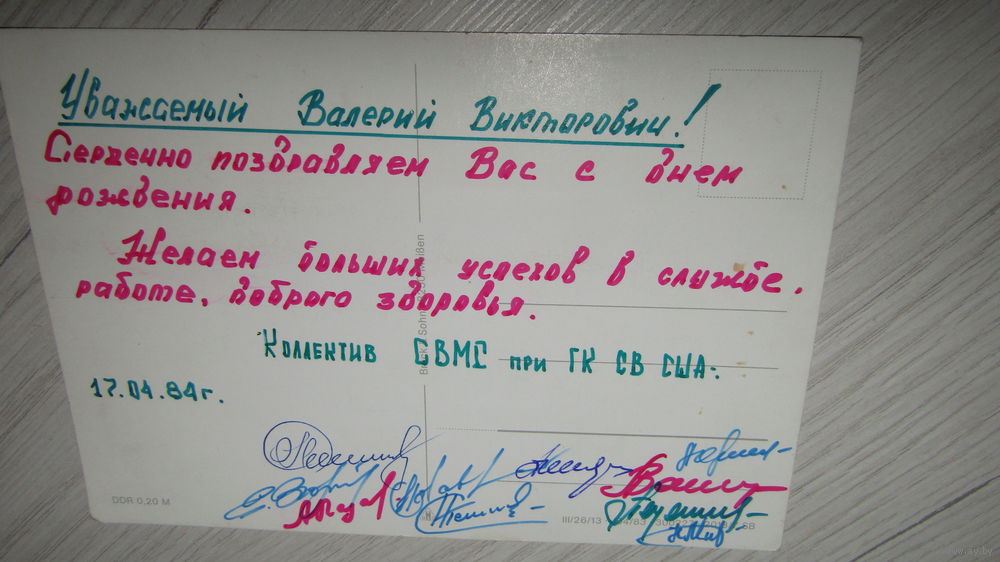 Уважаемый Валерий Викторович!
Сердечно поздравляем Вас с днем
рождения.
Желаем больших успехов в службе,
работе, доброго здоровья.
Коллектив СВМС при ГК СВ США.
17.04.84г.
DDR 0,20 M
III/26/13
www.ay.by